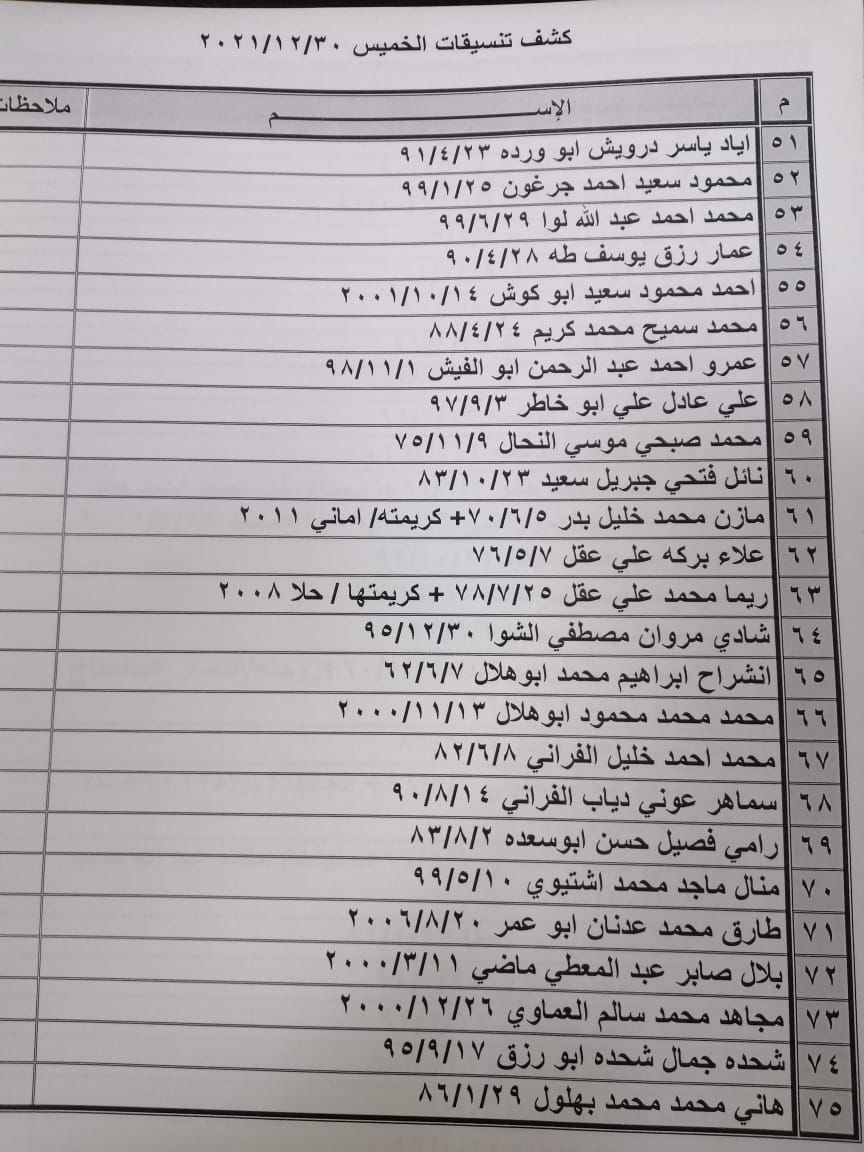 كشف تنسيقات الخميس ٢٠٢١/١٢/٣٠
م الإســـــــــم ملاحظات
٥١ اياد ياسر درويش ابو ورده ٩١/٤/٢٣
٥٢ محمود سعيد احمد جرغون ٩٩/١/٢٥
٥٣ محمد احمد عبد الله لوا ٩٩/٦/٢٩
٥٤ عمار رزق يوسف طه ٩٠/٤/٢٨
٥٥ احمد محمود سعيد ابو كوش ٢٠٠١/١٠/١٤
٥٦ محمد سميح محمد كريم ٨٨/٤/٢٤
٥٧ عمرو احمد عبد الرحمن ابو الفيش ٩٨/١١/١
٥٨ علي عادل علي ابو خاطر ٩٧/٩/٣
٥٩ محمد صبحي موسي النحال ٧٥/١١/٩
٦٠ نائل فتحي جبريل سعيد ٨٣/١٠/٢٣
٦١ مازن محمد خليل بدر ٧٠/٦/٥+ كريمته/ اماني ٢٠١١
٦٢ علاء بركه علي عقل ٧٦/٥/٧
٦٣ ريما محمد علي عقل ٧٨/٧/٢٥ + كريمتها / حلا ٢٠٠٨
٦٤ شادي مروان مصطفي الشوا ٩٥/١٢/٣٠
٦٥ انشراح ابراهيم محمد ابوهلال ٦٢/٦/٧
٦٦ محمد محمد محمود ابوهلال ٢٠٠٠/١١/١٣
٦٧ محمد احمد خليل الفراني ٨٢/٦/٨
٦٨ سماهر عوني دياب الفراني ٩٠/٨/١٤
٦٩ رامي فصيل حسن ابوسعده ٨٣/٨/٢
٧٠ منال ماجد محمد اشتيوي ٩٩/٥/١٠
٧١ طارق محمد عدنان ابو عمر ٢٠٠٦/٨/٢٠
٧٢ بلال صابر عبد المعطي ماضي ٢٠٠٠/٣/١١
٧٣ مجاهد محمد سالم العماوي ٢٠٠٠/١٢/٢٦
٧٤ شحده جمال شحده ابو رزق ٩٥/٩/١٧
٧٥ هاني محمد محمد بهلول ٨٦/١/٢٩